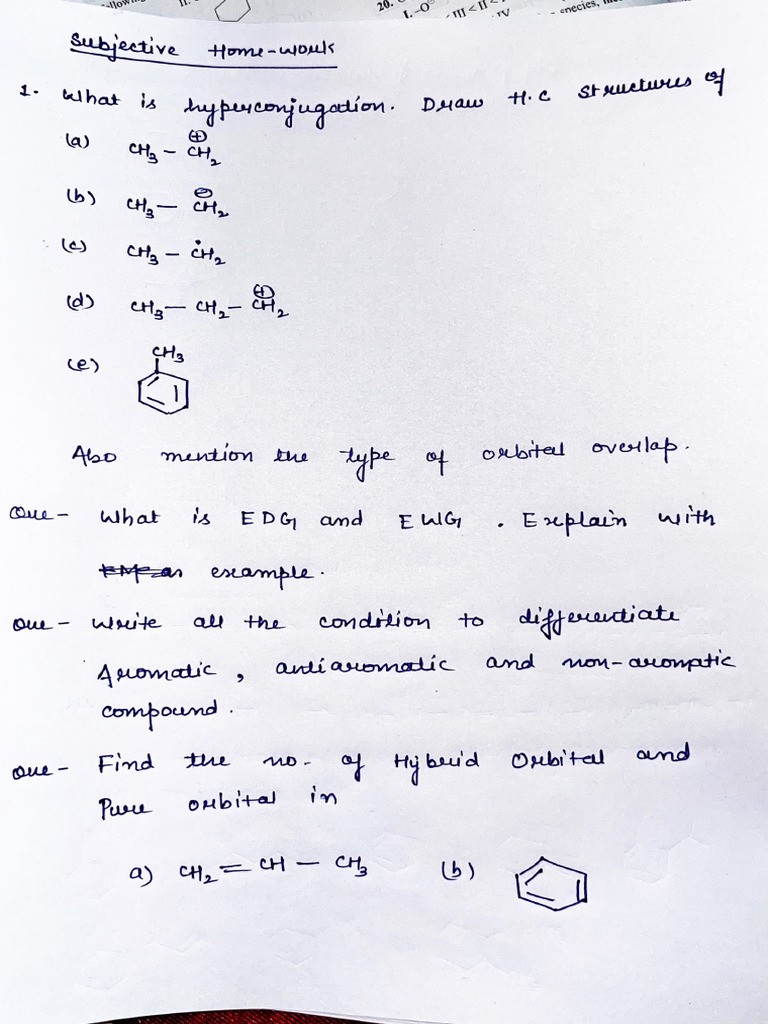 20.
I. -O
III < II <
IV
species,
Subjective Home-work
1. What is hyperconjugation. Draw H.C structures of
(a) CH₃ – CH₂ ⊕
(b) CH₃ – CH₂ ⊖
(c) CH₃ – ĊH₂
(d) CH₃ – CH₂ – CH₂ ⊕
(e) CH₃
Also mention the type of orbital overlap.
Que – What is EDG and EWG. Explain with
example.
Que – Write all the condition to differentiate
Aromatic, antiaromatic and non-aromatic
compound.
Que – Find the no. of Hybrid Orbital and
Pure orbital in
a) CH₂ = CH – CH₃ (b)